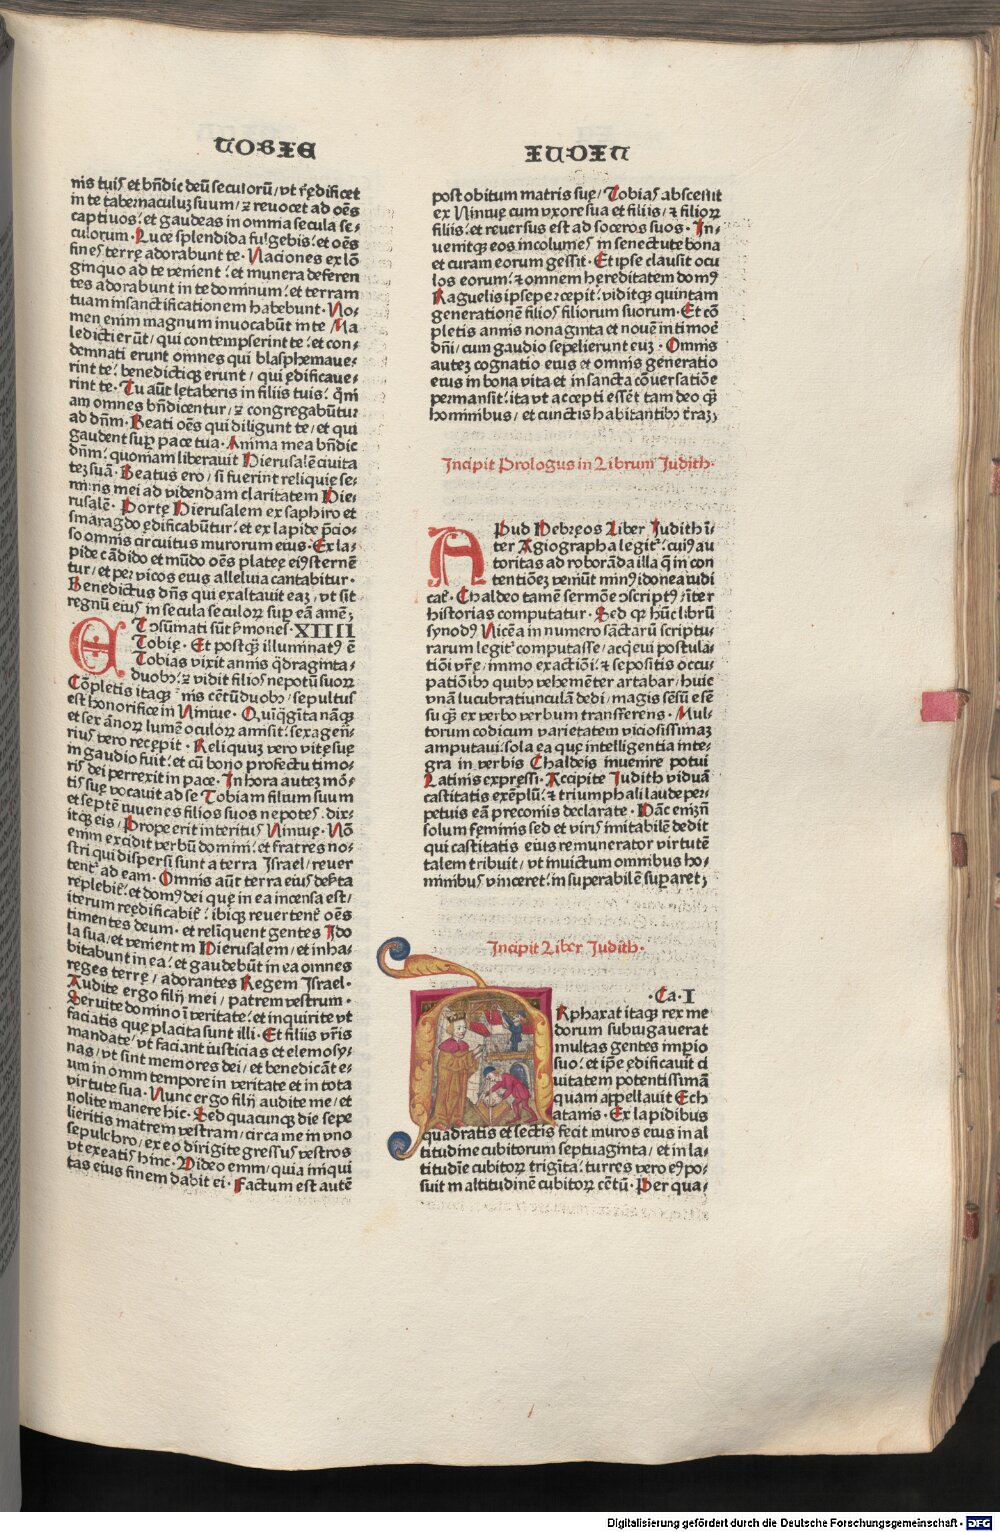 TOBIE
nis tuiſ et bn̄dic deū seculorū/ vt rȩdificet
in te tabernaculuʒ suum/ ꝛ reuocet ad oēs
captiuos: et gaudeas in omnia secula se⸗
culorum · Luce splendida fulgebis: et oēs
fineſ terrȩ adorabunt te · Naciones ex lō
ginquo ad te venient: et munera deferen
tes adorabunt in te dominum: et terram
tuam in sanctificationem habebunt · No⸗
men enim magnum inuocabūt in te Ma
ledicti erūt/ qui contempserint te: et con⸗
demnati erunt omnes qui blasphemaue⸗
rint te: benedictiqʒ erunt/ qui ȩdificaue⸗
rint te · Tu aūt lȩtaberis in filiis tuis: qm̄
am omnes bn̄dicentur/ ꝛ congregabūtur
ad dn̄m · Beati oēs qui diligunt te/ et qui
gaudent sup̄ pace tua · Anima mea bn̄dic
dn̄m: quoniam liberauit Hierusalē ciuita
teʒ suā · Beatus ero/ si fuerint reliquiȩ se⸗
minis mei ad videndam claritatem Hie⸗
rusalē · Portȩ Hierusalem ex saphiro et
smaragdo ȩdificabūtur: et ex lapide p̄cio⸗
so omnis circuitus murorum eius · Ex la⸗
pide cādido et mūdo oēs plateȩ eiꝰ sternē
tur/ et per vicos eius alleluia cantabitur ·
Benedictus dn̄s qui exaltauit eaʒ/ vt sit
regnū eiuſ in secula seculoꝝ sup eā amē;
ET ↄsūmati sūt ẜmoneſ · XIIII
Tobiȩ · Et postqʒ̄ illuminatꝰ ē
Tobias vixit annis q̄draginta⸗
duobꝰ: ꝛ vidit filioſ nepotū suoꝝ
Cōpletis itaqʒ annis cētū duobꝰ/ sepultus
est honorifice in Niniue · Quīq̄gīta nāqʒ
et sex ānoꝝ lumē oculoꝝ amisit: sexageñ⸗
rius vero recepit · Reliquuʒ vero vitȩ suȩ
in gaudio fuit: et cū bono profectu timo⸗
ris dei perrexit in pace · In hora auteʒ mō⸗
tis suȩ vocauit ad se Tobiam filium suum
et septē iuuenes filios suos nepoteſ · dix⸗
itqʒ eis/ Prope erit interituſ Niniuȩ · Nō
enim excidit verbū domini: et fratres no⸗
stri qui dispersi sunt a terra Israel/ reuer
tentᷣ ad eam · Omnis aūt terra eiuſ deẜta
replebitᷣ: et domꝰ dei quȩ in ea incensa est/
iterum reȩdificabitᷣ: ibiqʒ reuertentᷣ oēs
timentes deum · et relīquent gentes Ido
la sua/ et venient in Hierusalem/ et inha⸗
bitabunt in ea: et gaudebūt in ea omnes
reges terrȩ/ adorantes Regem Israel ·
Audite ergo filij mei/ patrem vestrum ·
Seruite domino ī veritate: et inquirite vt
faciatis quȩ placita sunt illi · Et filiis vr̄is
mandate/ vt faciant iusticias et elemosy⸗
nas/ vt sint memores dei/ et benedicāt e⸗
um in omni tempore in veritate et in tota
virtute sua · Nunc ergo filij audite me/ et
nolite manere hic · Sed quacunqʒ die sepe
lieritis matrem vestram/ circa me in vno
sepulchro/ ex eo dirigite gressuſ vestros
vt exeatiſ hinc · Video enim/ quia iniqui
tas eius finem dabit ei · Factum est autē
IUDIT
post obitum matris suȩ/ Tobiaſ abscessit
ex Niniuȩ cum vxore sua et filiis/ ꝛ filioꝝ
filiis: et reuersus est ad soceros suos · In⸗
uenitqʒ eos incolumeſ in senectute bona
et curam eorum gessit · Et ipse clausit ocu
los eorum: ꝛ omnem hereditatem domꝰ
Raguelis ipse percepit: viditqʒ quintam
generationē filioſ filiorum suorum · Et cō
pletis annis nonaginta et nouē in timoē
dn̄i/ cum gaudio sepelierunt euʒ · Omnis
auteʒ cognatio eius et omnis generatio
eius in bona vita et in sancta cōuersatiōe
permansit: ita vt accepti essēt tam deo qʒ̄
hominibus/ et cunctis habitantibꝰ terāʒ;
Incipit Prologus in Librum Judith ·
APud Hebrȩos Liber Judith ī⸗
ter Agiographa legitᷣ: cuiꝰ au
toritas ad roborāda illa q̄ in con
tentiōeʒ veniūt minꝰ idonea iudi
catᷣ · Chaldeo tamē sermōe ↄscriptꝰ/ īter
historias computatur · Sed qʒ hūc librū
synodꝰ Nicēa in numero sāctarū scriptu⸗
rarum legitᷣ computasse/ acqeui postula⸗
tiōi vr̄e/ immo exactiōi: ꝛ sepositis occu⸗
patiōibꝰ quibꝰ vehemēter artabar/ huic
vnā lucubratiunculā dedi/ magis sēsū e sē
su qʒ̄ ex verbo verbum transferens · Mul⸗
torum codicum varietatem viciosissimaʒ
amputaui: sola ea quȩ intelligentia inte⸗
gra in verbis Chaldeis inuenire potui
Latinis expressi · Accipite Judith viduā
castitatis exēplū: ꝛ triumphali laude per⸗
petuis eā preconiis declarate · Hāc eniʒ n̄
solum fȩminis sed et viriſ imitabilē dedit
qui castitatis eius remunerator virtutē
talem tribuit/ vt inuictum omnibus ho⸗
minibuſ vinceret: insuperabilē sup̄aret;
Incipit Liber Judith ·
· Ca · I
ARphaxat itaqʒ rex me
dorum subiugauerat
multas gentes imp̄io
suo: et ip̄e ȩdificauit ci
uitatem potentissimā
quam appellauit Ecb
atanis · Ex lapidibus
quadratis et sectis fecit muros eius in al
titudine cubitorum septuaginta/ et in la⸗
titudīe cubitoꝝ trigīta: turres vero eiꝰ po⸗
suit in altitudinē cubitoꝝ cētū · Per qua⸗
Digitalisierung gefördert durch die Deutsche Forschungsgemeinschaft - DFG